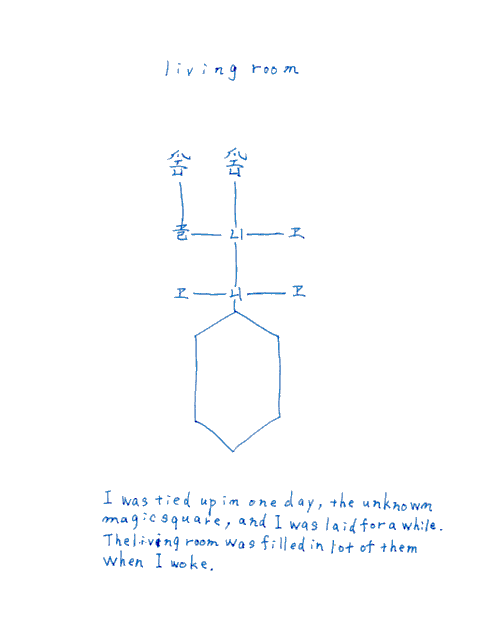 living room
I was tied up in one day, the unknown
magic square, and I was laid for a while.
The living room was filled in lot of them
when I woke.